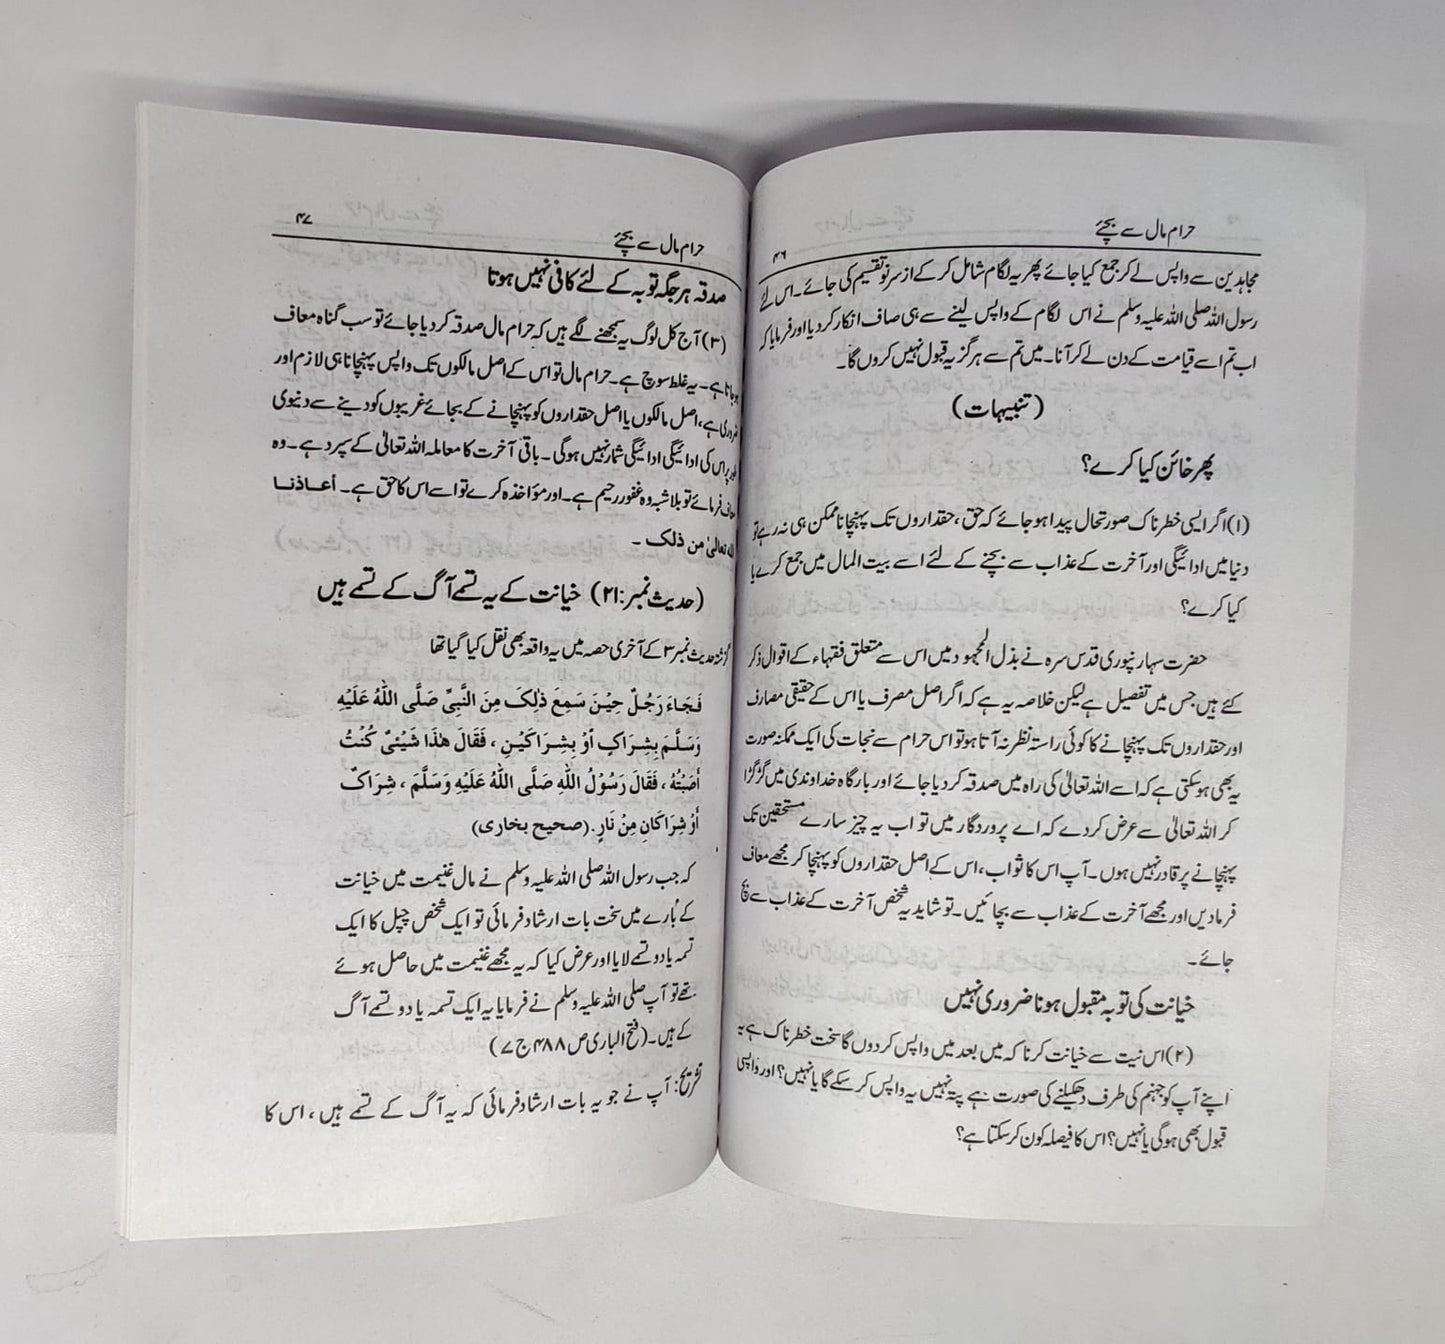 حرام مال سے بچئے
۴۶
مجاہدین سے واپس لے کر جمع کیا جائے پھر یہ لگام شامل کر کے از سر نو تقسیم کی جائے۔ اس لئے
رسول اللہ صلی اللہ علیہ وسلم نے اس لگام کے واپس لینے سے ہی صاف انکار کر دیا اور فرمایا کہ
اب تم اسے قیامت کے دن لے کر آنا۔ میں تم سے ہرگز یہ قبول نہیں کروں گا۔
(تنبیہات)
پھر خائن کیا کرے؟
(۱) اگر ایسی خطرناک صورتحال پیدا ہو جائے کہ حق، حقداروں تک پہنچانا ممکن ہی نہ رہے تو
دنیا میں ادائیگی اور آخرت کے عذاب سے بچنے کے لئے اسے بیت المال میں جمع کرے یا
کیا کرے؟
حضرت سہارنپوری قدس سرہ نے بذل المجہود میں اس سے متعلق فقہاء کے اقوال ذکر
کئے ہیں جس میں تفصیل ہے لیکن خلاصہ یہ ہے کہ اگر اصل مصرف یا اس کے حقیقی مصارف
اور حقداروں تک پہنچانے کا کوئی راستہ نظر نہ آتا ہو تو اس حرام سے نجات کی ایک ممکنہ صورت
یہ بھی ہو سکتی ہے کہ اسے اللہ تعالیٰ کی راہ میں صدقہ کر دیا جائے اور بارگاہ خداوندی میں گڑگڑا
کر اللہ تعالیٰ سے عرض کر دے کہ اے پروردگار میں تو اب یہ چیز سارے مستحقین تک
پہنچانے پر قادر نہیں ہوں۔ آپ اس کا ثواب، اس کے اصل حقداروں کو پہنچا کر مجھے معاف
فرمادیں اور مجھے آخرت کے عذاب سے بچائیں۔ تو شاید یہ شخص آخرت کے عذاب سے بچ
جائے۔
خیانت کی توبہ مقبول ہونا ضروری نہیں
(۲) اس نیت سے خیانت کرنا کہ میں بعد میں واپس کر دوں گا سخت خطرناک ہے یہ
اپنے آپ کو جہنم کی طرف دھکیلنے کی صورت ہے پتہ نہیں یہ واپس کر سکے گا یا نہیں؟ اور واپسی
قبول بھی ہوگی یا نہیں؟ اس کا فیصلہ کون کر سکتا ہے؟
حرام مال سے بچئے
۴۷
صدقہ ہر جگہ توبہ کے لئے کافی نہیں ہوتا
(۳) آج کل لوگ یہ سمجھنے لگے ہیں کہ حرام مال صدقہ کر دیا جائے تو سب گناہ معاف
ہو جاتا ہے۔ یہ غلط سوچ ہے۔ حرام مال تو اس کے اصل مالکوں تک واپس پہنچانا ہی لازم اور
ضروری ہے، اصل مالکوں یا اصل حقداروں کو پہنچانے کے بجائے غریبوں کو دینے سے دنیوی
طور پر اس کی ادائیگی ادائیگی شمار نہیں ہوگی۔ باقی آخرت کا معاملہ اللہ تعالیٰ کے سپرد ہے۔ وہ
معاف فرمائے تو بلاشبہ وہ غفور رحیم ہے۔ اور مؤاخذہ کرے تو اسے اس کا حق ہے۔ أعاذنا
اللہ تعالیٰ من ذلک ۔
(حدیث نمبر: ۲۱) خیانت کے یہ تسمے آگ کے تسمے ہیں
گزشتہ حدیث نمبر ۳ کے آخری حصہ میں یہ واقعہ بھی نقل کیا گیا تھا
فَجَاءَ رَجُلٌ حِيْنَ سَمِعَ ذٰلِکَ مِنَ النَّبِيِّ صَلَّى اللّٰهُ عَلَيْهِ
وَسَلَّمَ بِشِرَاکٍ أَوْ بِشِرَاكَيْنِ ، فَقَالَ هٰذَا شَيْئٌ كُنْتُ
أَصَبْتُهُ ، فَقَالَ رَسُوْلُ اللّٰهِ صَلَّى اللّٰهُ عَلَيْهِ وَسَلَّمَ ، شِرَاکٌ
أَوْ شِرَاكَانِ مِنْ نَارٍ. (صحیح بخاری)
کہ جب رسول اللہ صلی اللہ علیہ وسلم نے مال غنیمت میں خیانت
کے بارے میں سخت بات ارشاد فرمائی تو ایک شخص چپل کا ایک
تسمہ یا دو تسمے لایا اور عرض کیا کہ یہ مجھے غنیمت میں حاصل ہوئے
تھے تو آپ صلی اللہ علیہ وسلم نے فرمایا یہ ایک تسمہ یا دو تسمے آگ
کے ہیں۔ (فتح الباری ص ۴۸۸ ج ۷)
تشریح: آپ نے جو یہ بات ارشاد فرمائی کہ یہ آگ کے تسمے ہیں، اس کا